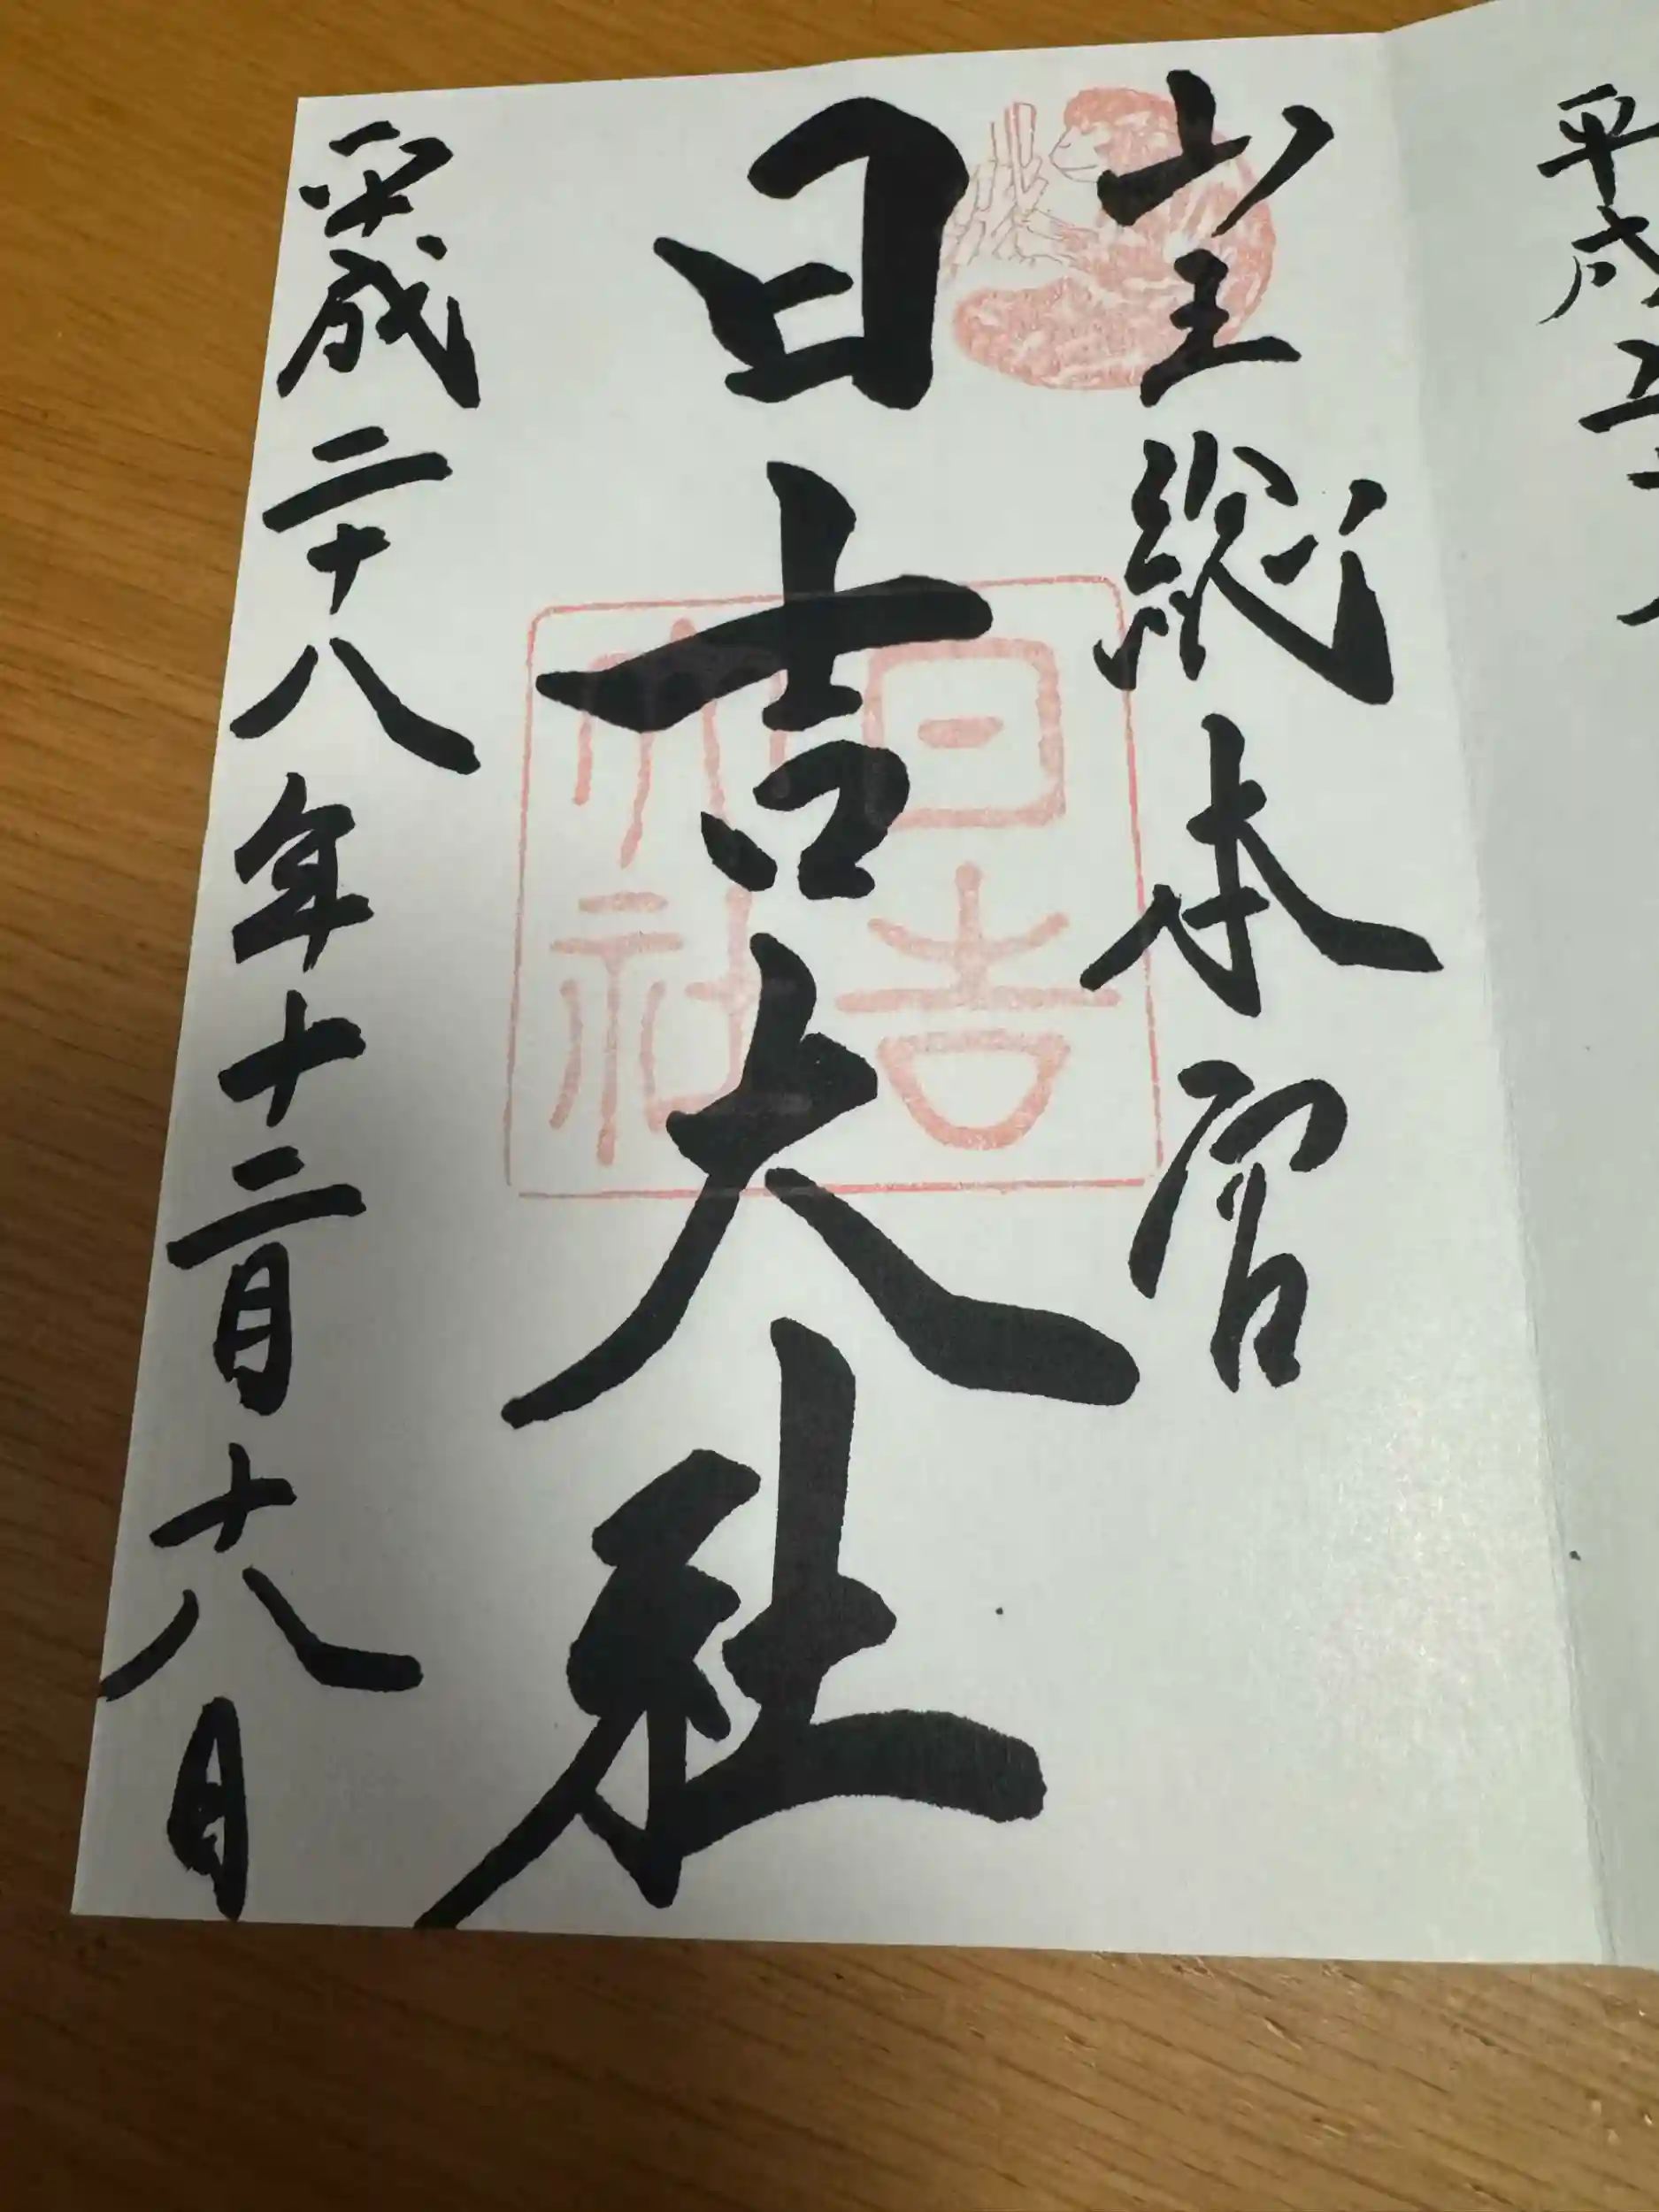 平成
山王総本宮
日吉大社
日吉
大社
平成二十八年十二月十八日